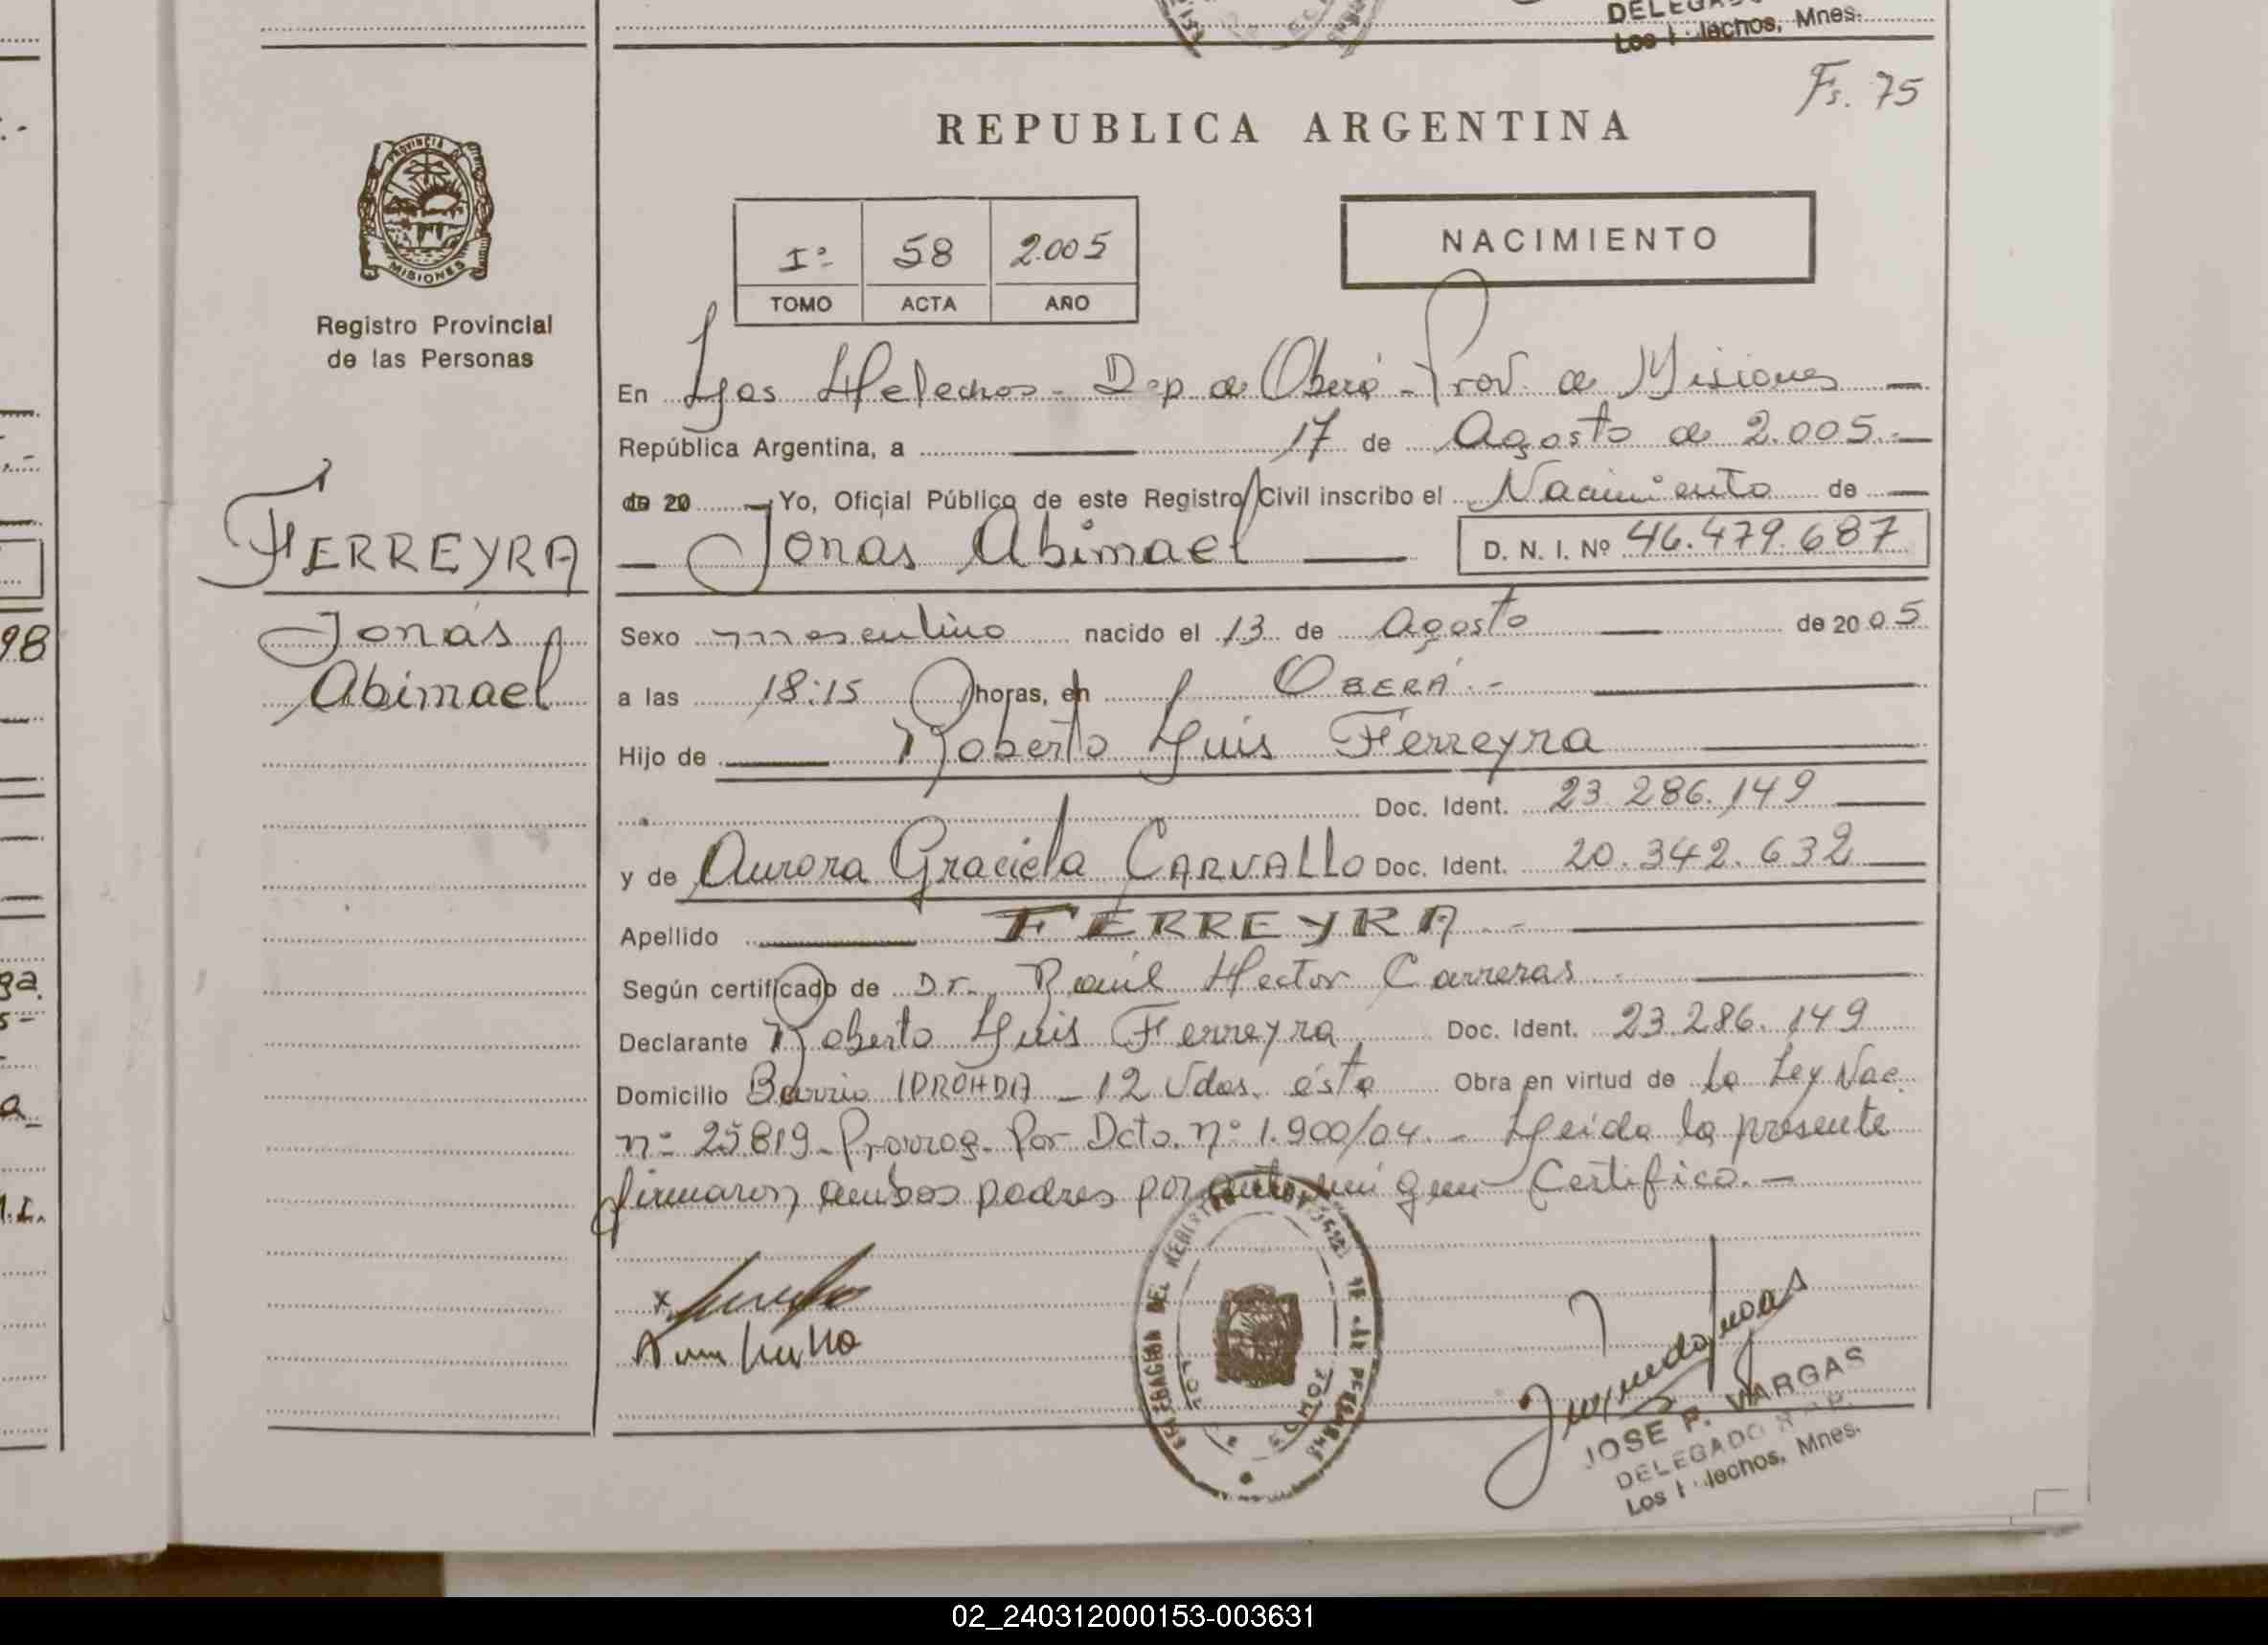 DELEGADO
Los Helechos, Mnes.
Fs. 75
REPUBLICA ARGENTINA
PROVINCIA D
MISIONES
Registro Provincial
de las Personas
Iº 58 2.005
TOMO ACTA AÑO
NACIMIENTO
En Los Helechos - Dep de Oberá - Prov. de Misiones
República Argentina, a 17 de Agosto de 2.005.-
de 20 Yo, Oficial Público de este Registro Civil inscribo el Nacimiento de
Jonas Abimael D. N. I. Nº 46.479.687
FERREYRA
Jonás
Abimael
Sexo masculino nacido el 13 de Agosto de 2005
a las 18:15 horas, en OBERÁ.-
Hijo de Roberto Luis Ferreyra
Doc. Ident. 23.286.149
y de Aurora Graciela CARVALLO Doc. Ident. 20.342.632
Apellido FERREYRA.-
Según certificado de Dr. Raúl Hector Carreras
Declarante Roberto Luis Ferreyra Doc. Ident. 23.286.149
Domicilio Barrio IPROHDA - 12 Vdas. ésta Obra en virtud de la Ley Nac.
nº 25819 - Prorrog. Por Dcto. nº 1.900/04.- Leída la presente
firmaron ambos padres por ante mi que Certifico.-
JOSE P. VARGAS
DELEGADO R.P.P.
Los Helechos, Mnes.
98
ga.
s-
a
02_240312000153-003631